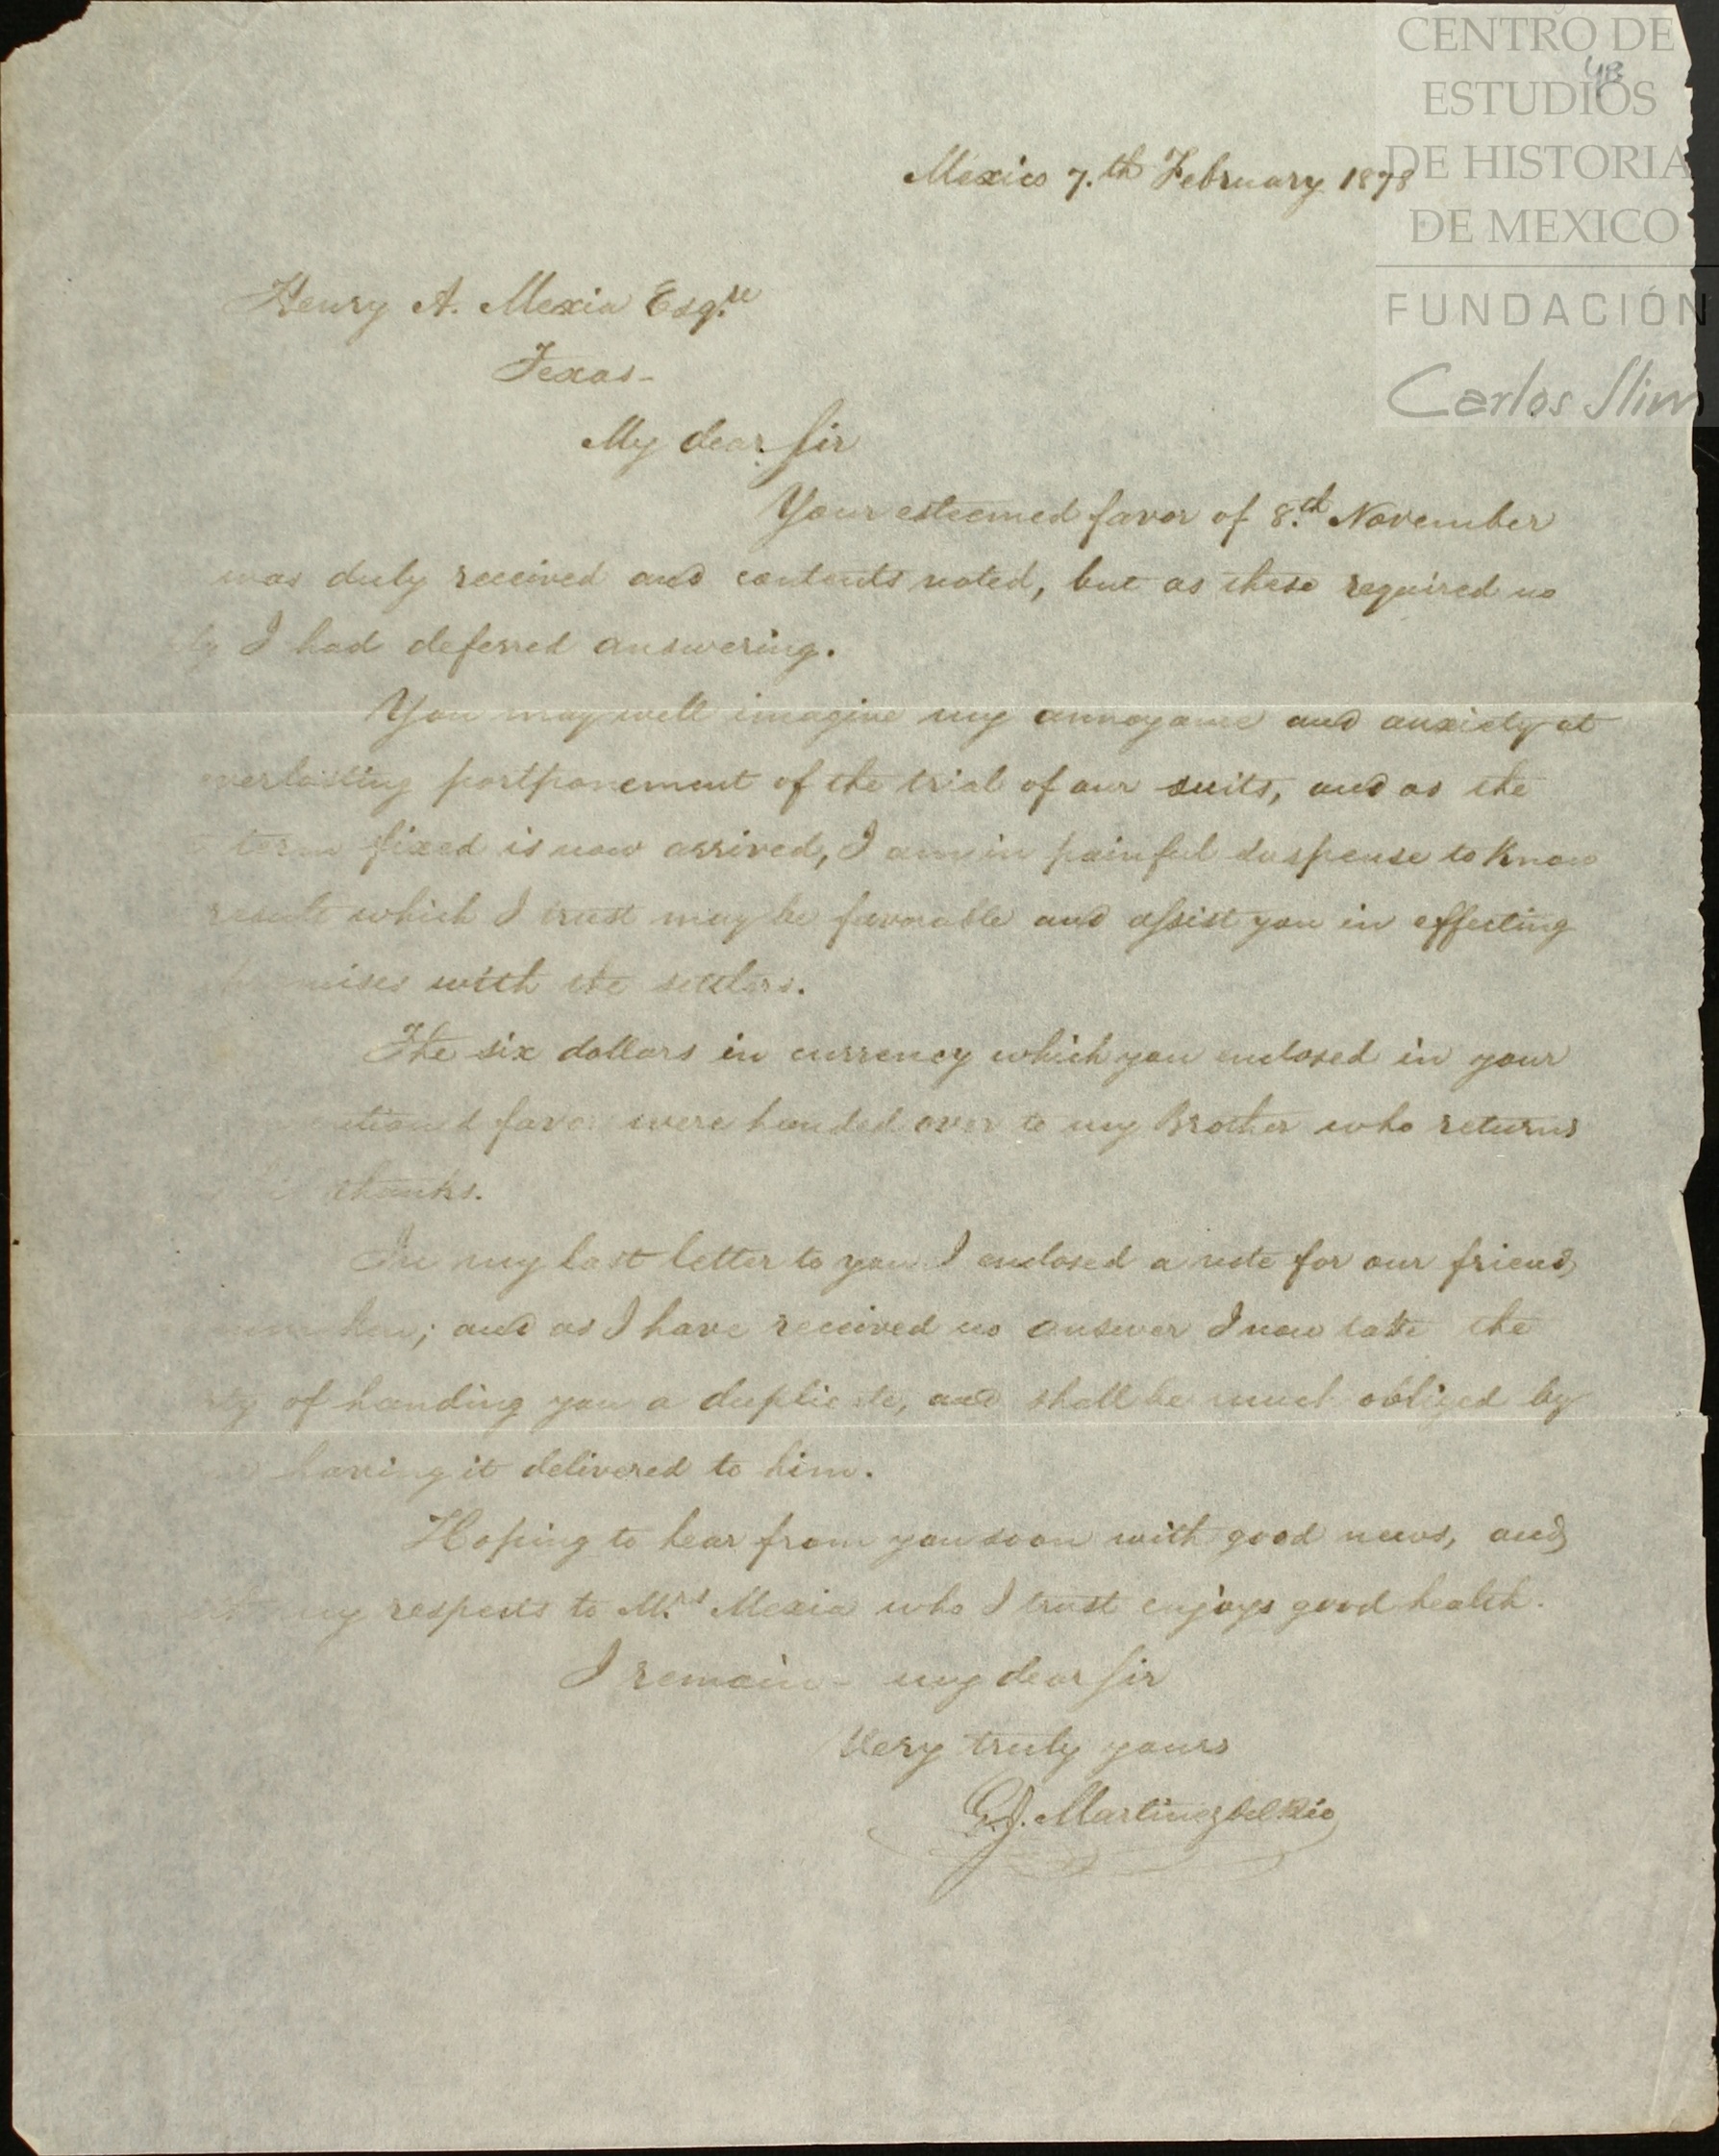 CENTRO DE
ESTUDIOS
DE HISTORIA
DE MEXICO
FUNDACIÓN
Carlos Slim
Mexico 7.th February 1878
Henry A. Mexia Esq.re
Texas-
My dear Sir
Your esteemed favor of 8.th November
was duly received and contents noted, but as these required no
I had deferred answering.
You may well imagine my annoyance and anxiety at
everlasting postponement of the trial of our suits, and as the
term fixed is now arrived, I am in painful suspense to know
result which I trust may be favorable and assist you in effecting
with the settlers.
The six dollars in currency which you enclosed in your
favor were handed over to my Brother who returns
thanks.
In my last letter to you I enclosed a note for our friend
; and as I have received no answer I now take the
of handing you a duplicate, and shall be much obliged by
having it delivered to him.
Hoping to hear from you soon with good news, and
my respects to M.rs Mexia who I trust enjoys good health.
I remain - my dear Sir
Very truly yours
Martinez del Rio